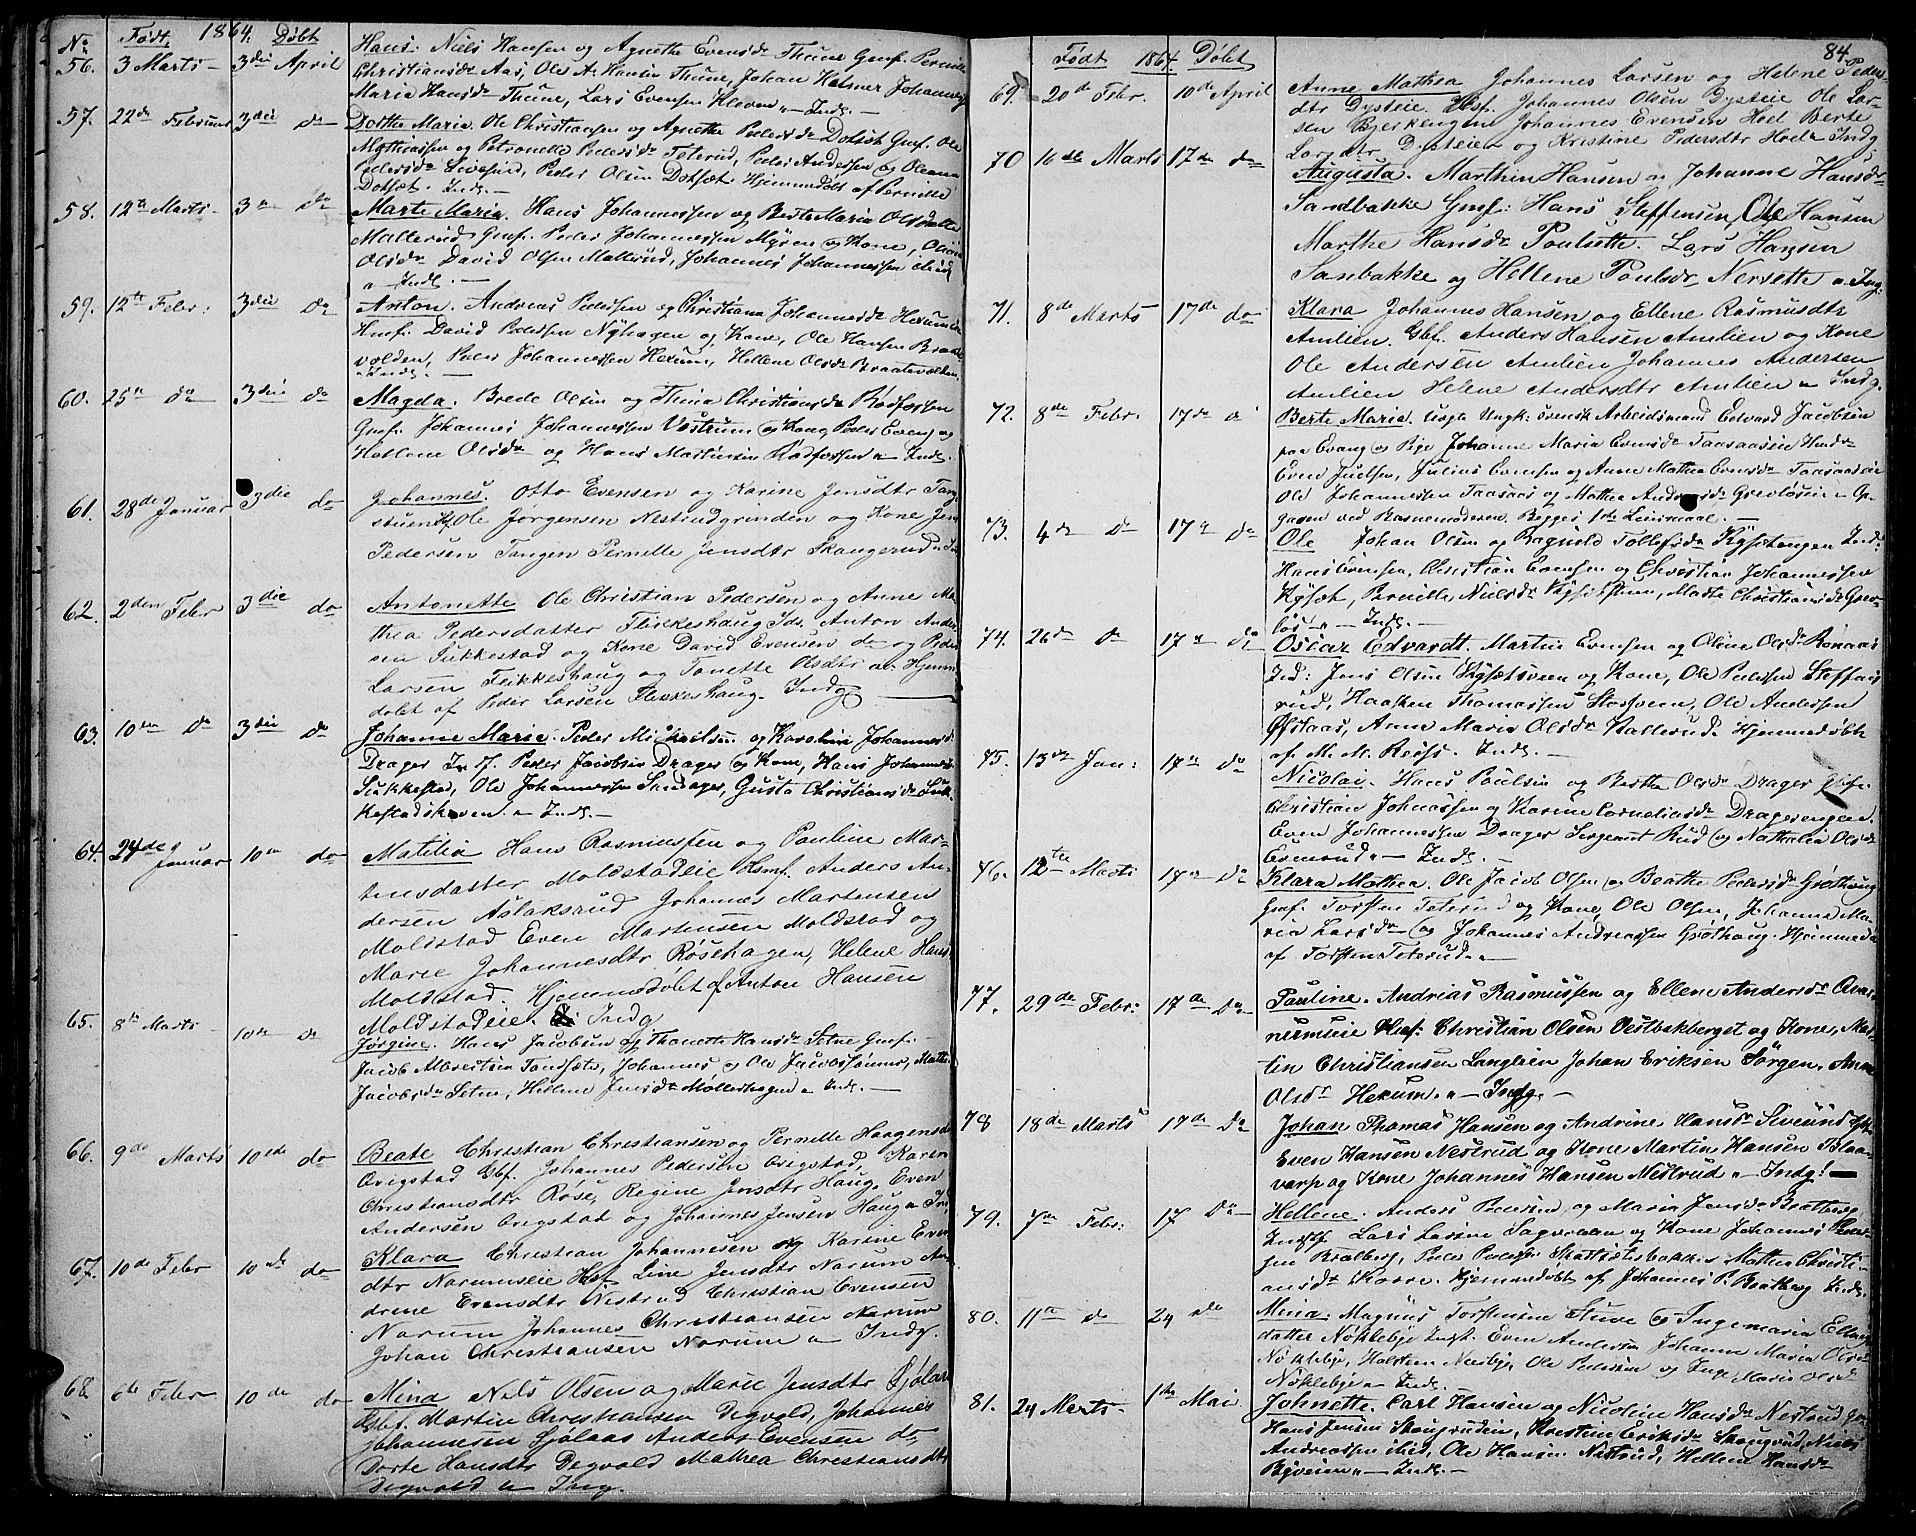 No Født, 1864. Døbt
56. 3 Marts - 3die April Hans. Niels Hansen og Agnethe Evensdr Thune Gmf. Pernille
Christiansdr Aas, Ole A. Hansen Thune, Johan Helmer Johannes
Maria Hansdr Thune, Lars Evensen Kleven - Inds. -
57. 22de Februar 3die do Dorthe Maria. Ole Christiansen og Agnethe Pedersdr Dotset Gmf. Ole
Mathiassen og Petronelle Pedersdr Teterud, Peder Andersen og Oleana
Pedersdr Sivesind, Peder Olsen Dotsæt. Hjemmedøbt af Pernille
Dotsæt. Inds. -
58. 12te Marts - 3die do Marte Maria. Hans Johannessen og Berte Maria Olsdatter
Mallerud Gmf. Peder Johannessen Myren og Kone, Oline
Olsdr David Olsen Mallerud, Johannes Johannessen ibid
- Inds. -
59. 12te Febr: 3die do Anton. Andreas Pedersen og Christiana Johannesdr Hexum
Hmf. David Pedersen Nyhagen og Kone, Ole Hansen Braate
volden, Peder Johannessen Hexum, Hellene Olsdr Braatevolden.
- Inds. -
60. 25de do 3die do Magda. Brede Olsen og Thina Christiansdr Rødfossen
Gmf. Johannes Johannessen Vestrum og Kone, Peder Evens og
Hellene Olsdr og Hans Martinsen Rødfossen - Inds.
61. 28de Januar 3die do Johannes. Otto Evensen og Karine Jensdtr Tang
stuen Ole Jørgensen Nestrudgrinden og Kone Jens
Pedersen Tangen Pernille Jensdtr Skangerud
62. 2den Febr 3die do Antonette Ole Christian Pedersen og Anne Ma-
thea Pedersdatter Flikkeshaug Ids. Anton Ander
sen Sukkestad og Kone David Evensen do og Peder
Larsen Flikkeshaug og Tonette Olsdtr Hjemme
døbt af Peder Larsen Flikkeshaug. Indg
63. 10de do 3die do Johanne Marie. Peder Michelsen og Karoline Johannesd.
Drager Peder Jacobsen Drager og Kone, Hans Johannes
Slukkestad, Ole Johannessen Sandager, Gusta Christiansdr Suk
kestadskeven. - Inds. -
64. 24de Januar 10de do Matilia Hans Rasmussen og Pauline Mar-
tensdatter Moldstadeie Hsmf. Anders An-
dersen Aslaksrud Johannes Martensen
Moldstad Even Martensen Moldstad og
Marie Johannesdtr Røsehagen, Helene Hansd
Moldstad. Hjemmedøbt af Anton Hansen
Moldstadeie. Indg
65. 8de Marts - 10de do Jørgine. Hans Jacobsen og Thonette Hansdr Setne Gmf. -
Jacob Albertsen Tandsæte, Johannes og Ole Jacobssønner, Mathea
Jacobsdr Setne, Hellene Jensdr Møllerhagen - Inds. -
66. 9de Marts 10de do Beate Christian Christiansen og Pernille Haagensd
Evigstad Gbf. Johannes Pedersen Evigstad, Karen
Christiansdtr Røse, Regine Jensdtr Haug, Even
Andersen Evigstad og Johannes Jensen Haug
67. 10de Febr 10de do Klara Christian Johannesen og Karine Even
dtr Narumseie Hsf. Line Jensdtr Narum An
drine Evensdtr Nestrud Christian Evensen
Narum Johannes Christiansen Narum
Johan Christiansen Narum - Indg.
68. 6de Febr 10de do Mina Nels Olsen og Marie Jensdtr Sjølaas
Gsbf. Martin Christiansen Degvold, Johannes
Johannesen Sjølaas Anders Evensen do
Dorte Hansdtr Degvold Mathea Christiansdtr
Degvold - Indg.
84.
Født 1864 Døbt
69. 20de Febr. 10de April Anne Mathea Johannes Larsen og Helene Peders-
dtr Dysteie. Hsf. Johannes Olsen Dysteie Ole Lar-
sen Bjerkengen Johannes Evensen Hoel Berte
Larsdtr Dysteie og Kristine Pedersdtr Hoel - Indg
70 16de Marts 17de do Augusta. Marthin Hansen - Johanne Hansdr
Sandbakke Gmf: Hans Steffensen, Ole Hansen
Marthe Hansdr Poulsette. Lars Hansen
Sanbakke og Hellene Poulsdr Nersette - Ing.
71. 8de Marts 17de do Klara Johannes Hansen og Ellene Rasmusdtr
Amlien. Gbf. Anders Hansen Amlien og Kone
Ole Andersen Amlien Johannes Andersen
Amlien Helene Andersdtr Amlien - Indg.
72. 8de Febr. 17de d Berte Marie. Uægte Ungk: svensk Arbeidsmand Edvard Jacobsen
paa Evang og Pige Johanne Maria Evensdr Taasaaseie Inds
Even Juelsen, Julius Evensen og Anne Mathea Evensdr Taasaaseie
Ole Johannessen Taasaas og Mathea Andreasdr Grevløseie - Op
gaven ved Barnemoderen. Begges 1ste Leiermaal. -
73. 4de D 17de Do Ole Johan Olsen og Ragnild Tollefsdr Kysettangen Inds:
Hans Evensen, Christian Evensen og Christian Johannessen
Kysæt, Pernille Nielsdr Kysetstuen, Marte Christiansdr Grev
løs - Inds. -
74. 26de D 17de Do Oscar Edvardt. Martin Evensen og Oline Olsdr Rønaas
Ind: Jens Olsen Kysætsveen og Kone, Ole Pedersen Steffens
rud, Haaken Thomassen Storsveen, Ole Andersen
Østaas, Anne Maria Olsdr Kallerud. Hjemmedøbt
af M. M. Reiss. Inds. -
75. 13de Jan: 17de Do Nicolai. Hans Poulsen og Berthe Olsdr Drager
Christian Johnassen og Karine Corneliusdr Dragerengen.
Even Johannessen Drager Sergeant Rud og Nathalia Olsdr
Evensrud. - Inds. -
76. 12te Marts 17de Do Klara Mathea. Ole Jacob Olsen og Beathe Pedersdr Grøthaug
Gmf. Torsten Teterud og Kone, Ole Olsen, Johanne Ma
ria Larsdr og Johannes Andreassen Grøthaug. Hjemmedø
af Torsten Teterud. -
77. 29de Febr: 17de Do Pauline. Andrias Rasmussen og Ellene Andersdr Qvar
numseie Hsf: Christian Olsen Oestbakberget og Kone, Mar
tin Christiansen Langlien Johan Eriksen Sörgen. Anne
Olsdr Hexum. - Indg. -
78 18de Marts 17de Do Johan Thomas Hansen og Andrine Hansdr Sivesind
Even Hansen Nestrud og Kone Martin Hansen Blaa
varp og Kone Johannes Hansen Nestrud - Indg! -
79. 7de Febr: 17 Do Hellene. Anders Pedersen og Maria Jensdr Bratberg
Lars Larsen Sagvolden og Kone Johannes Peder
sen Bratberg, Peder Pedersen Skattsætsbakken Mathea Christi
ansdr Skarre. Hjemmedøbt af Johannes P. Bratberg Inds.
80. 11te d 24 do Mina. Magnus Torstensen Stuve og Ingemaria Ellings
datter Nøklebye Ingst. Even Andersen Johanne Maria Olsdr
Nøklebye, Halsten Nesbye, Ole Pedersen og Inge Maria Olsdr
Nøklebye - Inds.
81. 24 Marts. 1ste Mai Johnette. Carl Hansen og Nicoline Hansdr Nestrud
Hans Jensen Skougruden, Kristine Eriksdr Skougrud, Niels
Andreassen ibid, Ole Hansen Nestrud, Hellene Hansdr
Byveien - Inds. -